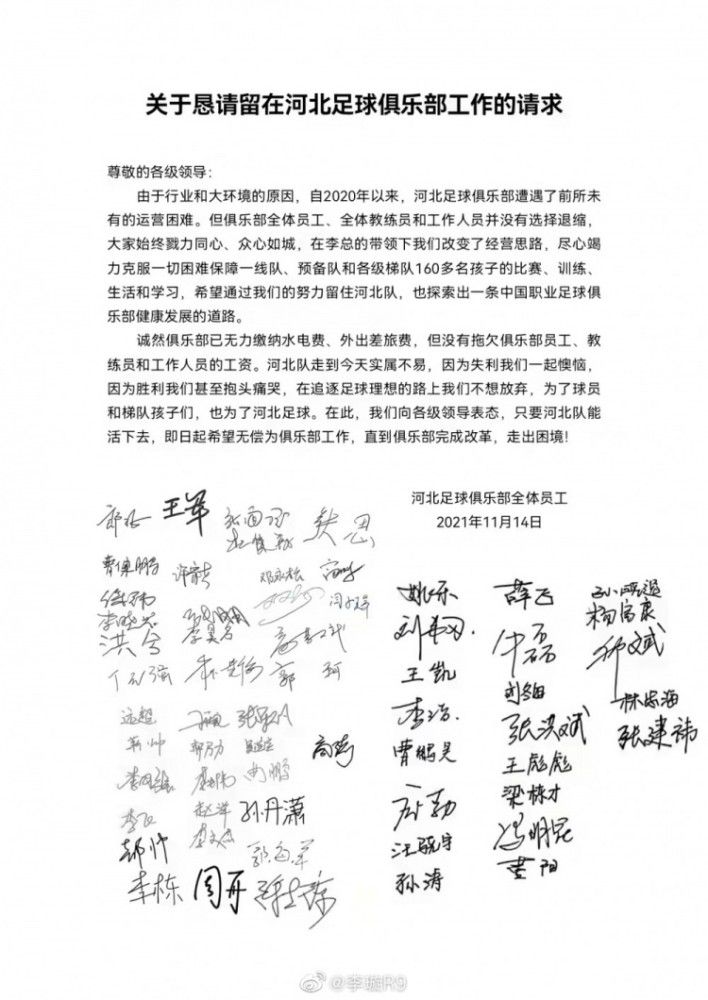 关于恳请留在河北足球俱乐部工作的请求
尊敬的各级领导：
由于行业和大环境的原因，自2020年以来，河北足球俱乐部遭遇了前所未
有的运营困难。但俱乐部全体员工、全体教练员和工作人员并没有选择退缩，
大家始终戮力同心、众心如城，在李总的带领下我们改变了经营思路，尽心竭
力克服一切困难保障一线队、预备队和各级梯队160多名孩子的比赛、训练、
生活和学习，希望通过我们的努力留住河北队，也探索出一条中国职业足球俱
乐部健康发展的道路。
诚然俱乐部已无力缴纳水电费、外出差旅费，但没有拖欠俱乐部员工、教
练员和工作人员的工资。河北队走到今天实属不易，因为失利我们一起懊恼，
因为胜利我们甚至抱头痛哭，在追逐足球理想的路上我们不想放弃，为了球员
和梯队孩子们，也为了河北足球。在此，我们向各级领导表态，只要河北队能
活下去，即日起希望无偿为俱乐部工作，直到俱乐部完成改革，走出困境！
河北足球俱乐部全体员工
2021年11月14日
王军
曹保鹏
洪兮
郭 珂
姚乐
薛飞
杨富康
王凯
李浩
曹鹏昊
张洪斌
林忠海
张建祎
王彪彪
梁栋才
冯明昆
黄阳
汪晓宇
孙涛
远超
高嵩
赵洋
孙丹潇
郝帅
郭海军
李栋
周开
@李璇R9